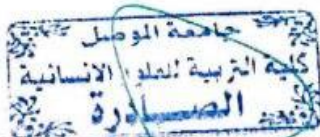 جامعة الموصل
كلية التربية للعلوم الانسانية
الصادرة